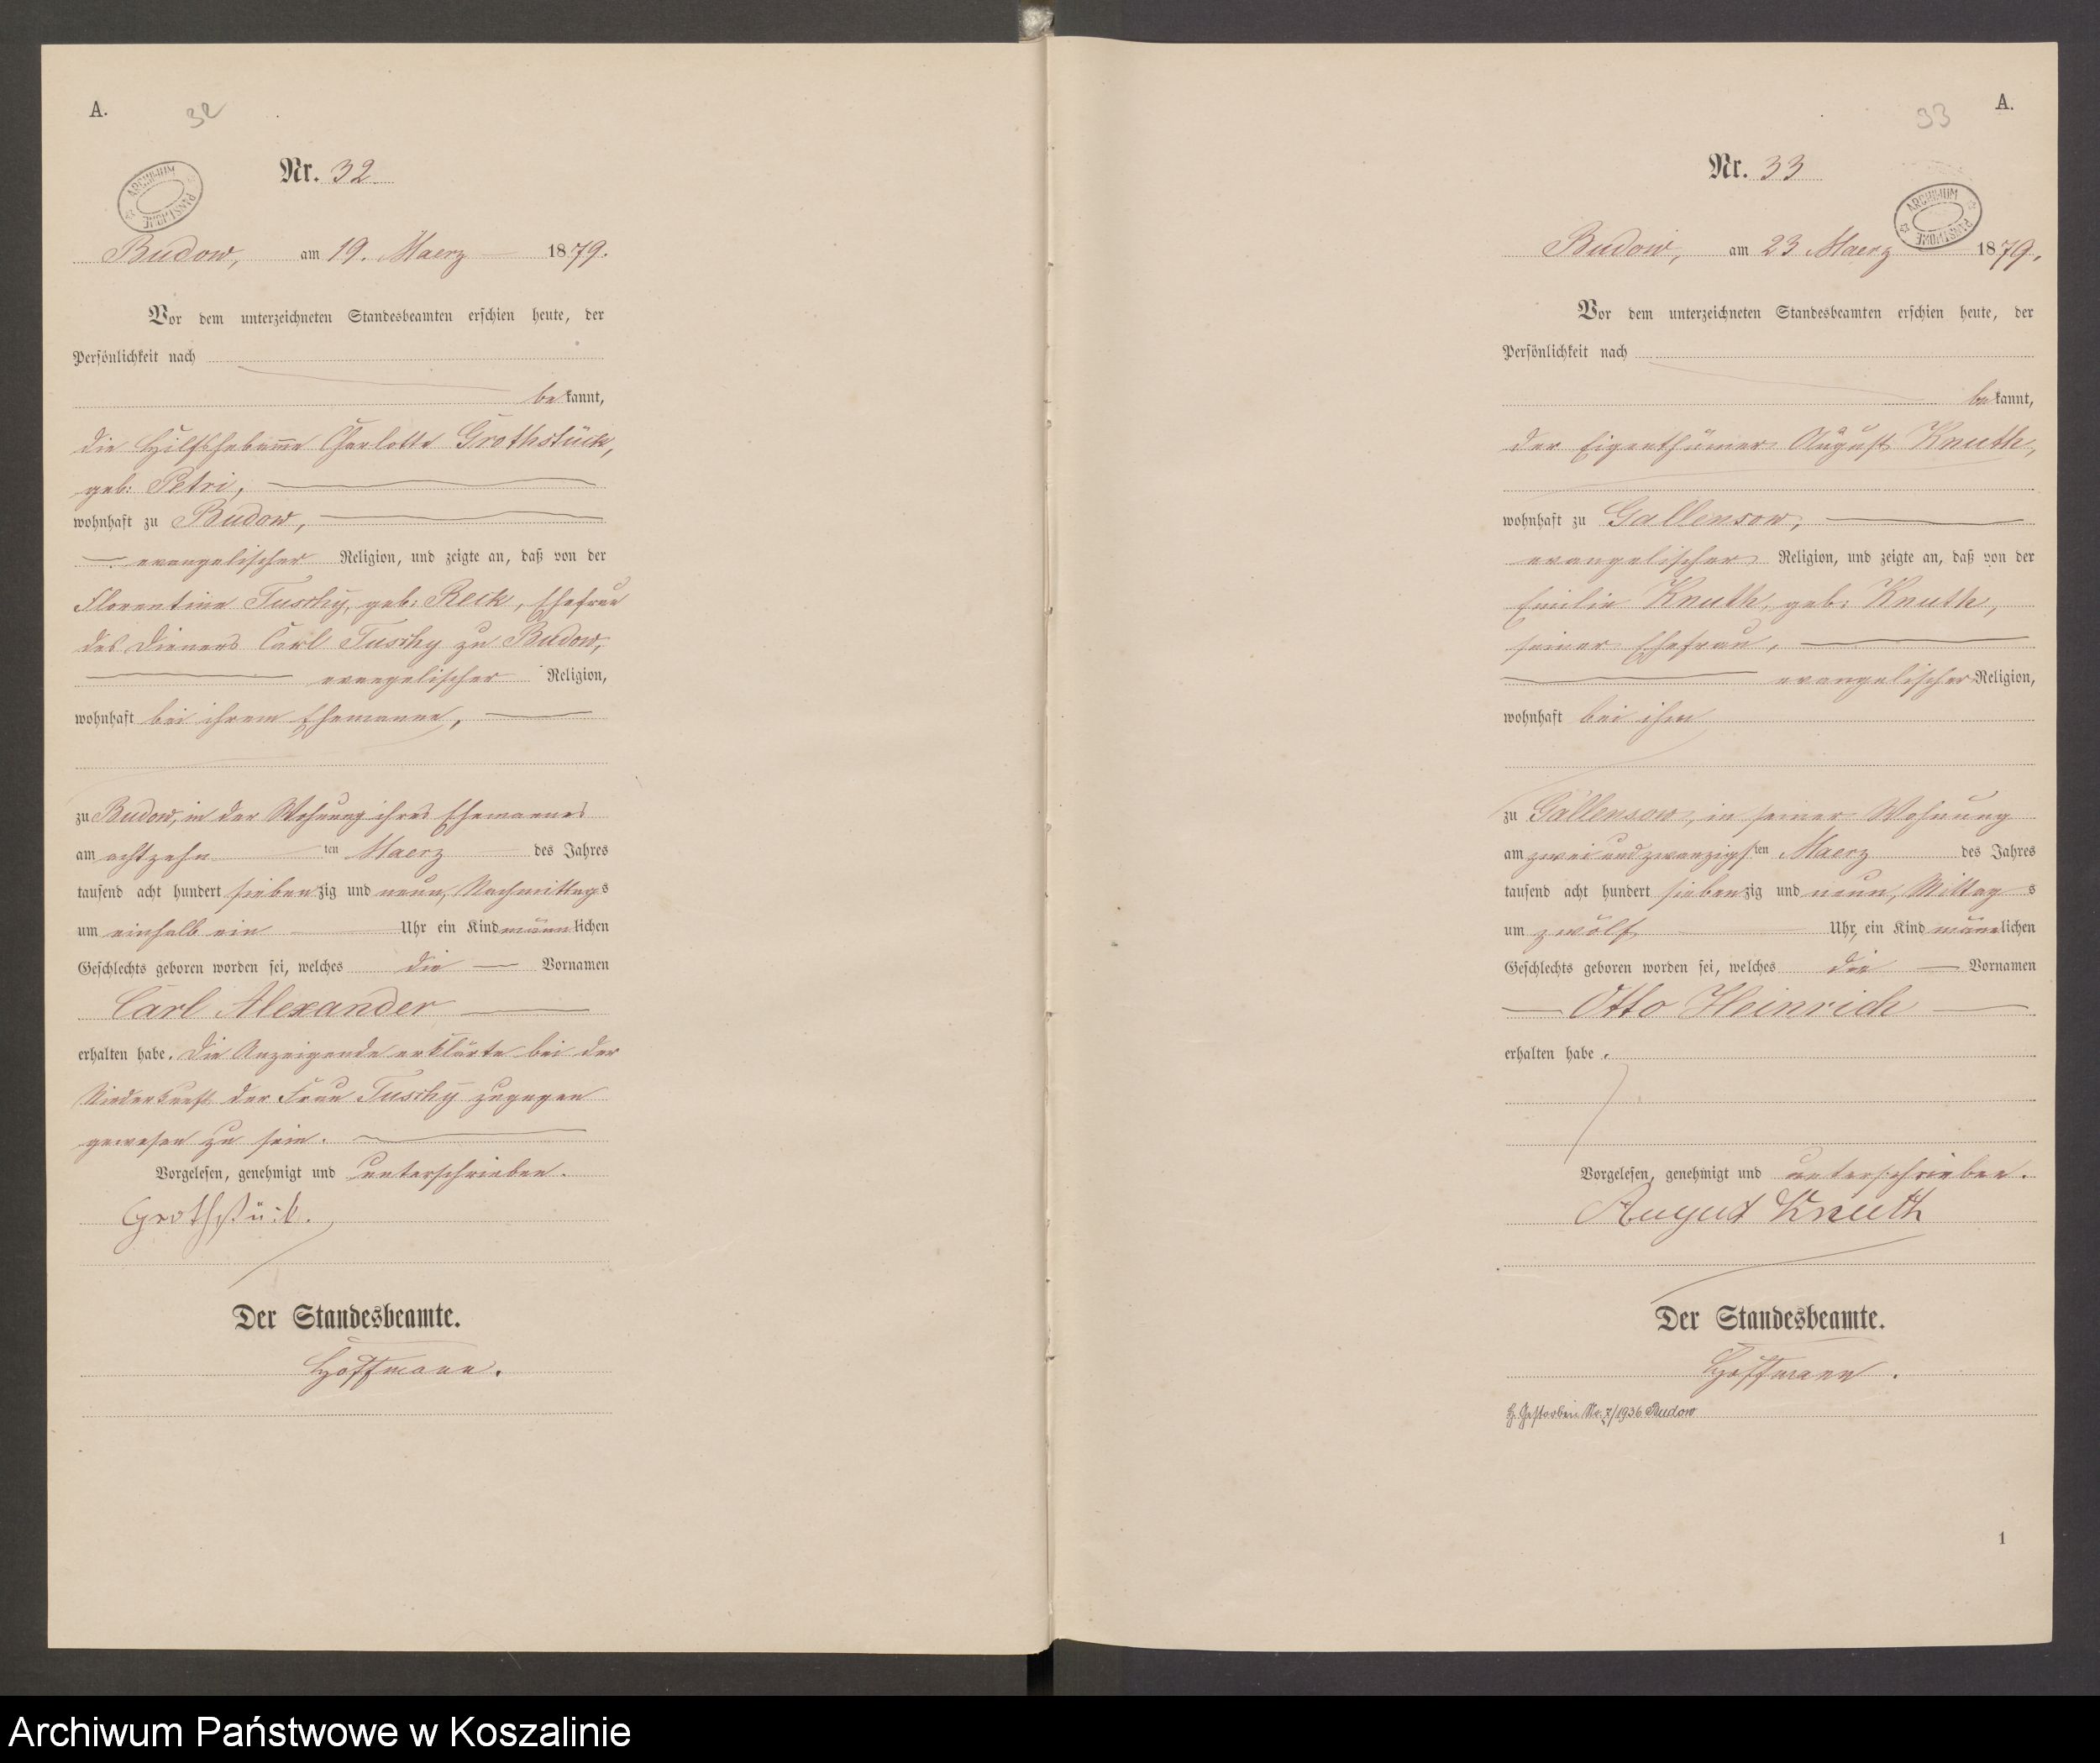 A.
32
Nr. 32
ARCHIWUM PAŃSTWOWE
Budow, am 19. Maerz 1879.
Vor dem unterzeichneten Standesbeamten erschien heute, der
Persönlichkeit nach
bekannt,
die Hilfshebamme Charlotte Grothstück,
geb: Petri,
wohnhaft zu Budow,
evangelischer Religion, und zeigte an, daß von der
Florentine Tuschy, geb: Reck, Ehefrau
des Dieners Carl Tuschy zu Budow,
evangelischer Religion,
wohnhaft bei ihrem Ehemanne,
zu Budow, in der Wohnung ihres Ehemannes
am achtzehn ten Maerz des Jahres
tausend acht hundert siebenzig und neun, Nachmittags
um einhalb ein Uhr ein Kind männlichen
Geschlechts geboren worden sei, welches die Vornamen
Carl Alexander
erhalten habe. Die Anzeigende erklärte bei der
Niederkunft der Frau Tuschy zugegen
gewesen zu sein.
Vorgelesen, genehmigt und unterschrieben.
Grothstück.
Der Standesbeamte.
Hoffmann.
A.
33
Nr. 33
ARCHIWUM PAŃSTWOWE
Budow, am 23 Maerz 1879,
Vor dem unterzeichneten Standesbeamten erschien heute, der
Persönlichkeit nach
bekannt,
der Eigenthümer August Knuth,
wohnhaft zu Gallensow,
evangelischer Religion, und zeigte an, daß von der
Emilie Knuth, geb: Knuth,
seiner Ehefrau,
evangelischer Religion,
wohnhaft bei ihm
zu Gallensow, in seiner Wohnung
am zwei und zwanzigsten Maerz des Jahres
tausend acht hundert siebenzig und neun, Mittags
um zwölf Uhr, ein Kind männlichen
Geschlechts geboren worden sei, welches die Vornamen
Otto Heinrich
erhalten habe.
Vorgelesen, genehmigt und unterschrieben.
August Knuth
Der Standesbeamte.
Hoffmann.
Gestorben Nr. 7/1936 Budow
1
Archiwum Państwowe w Koszalinie